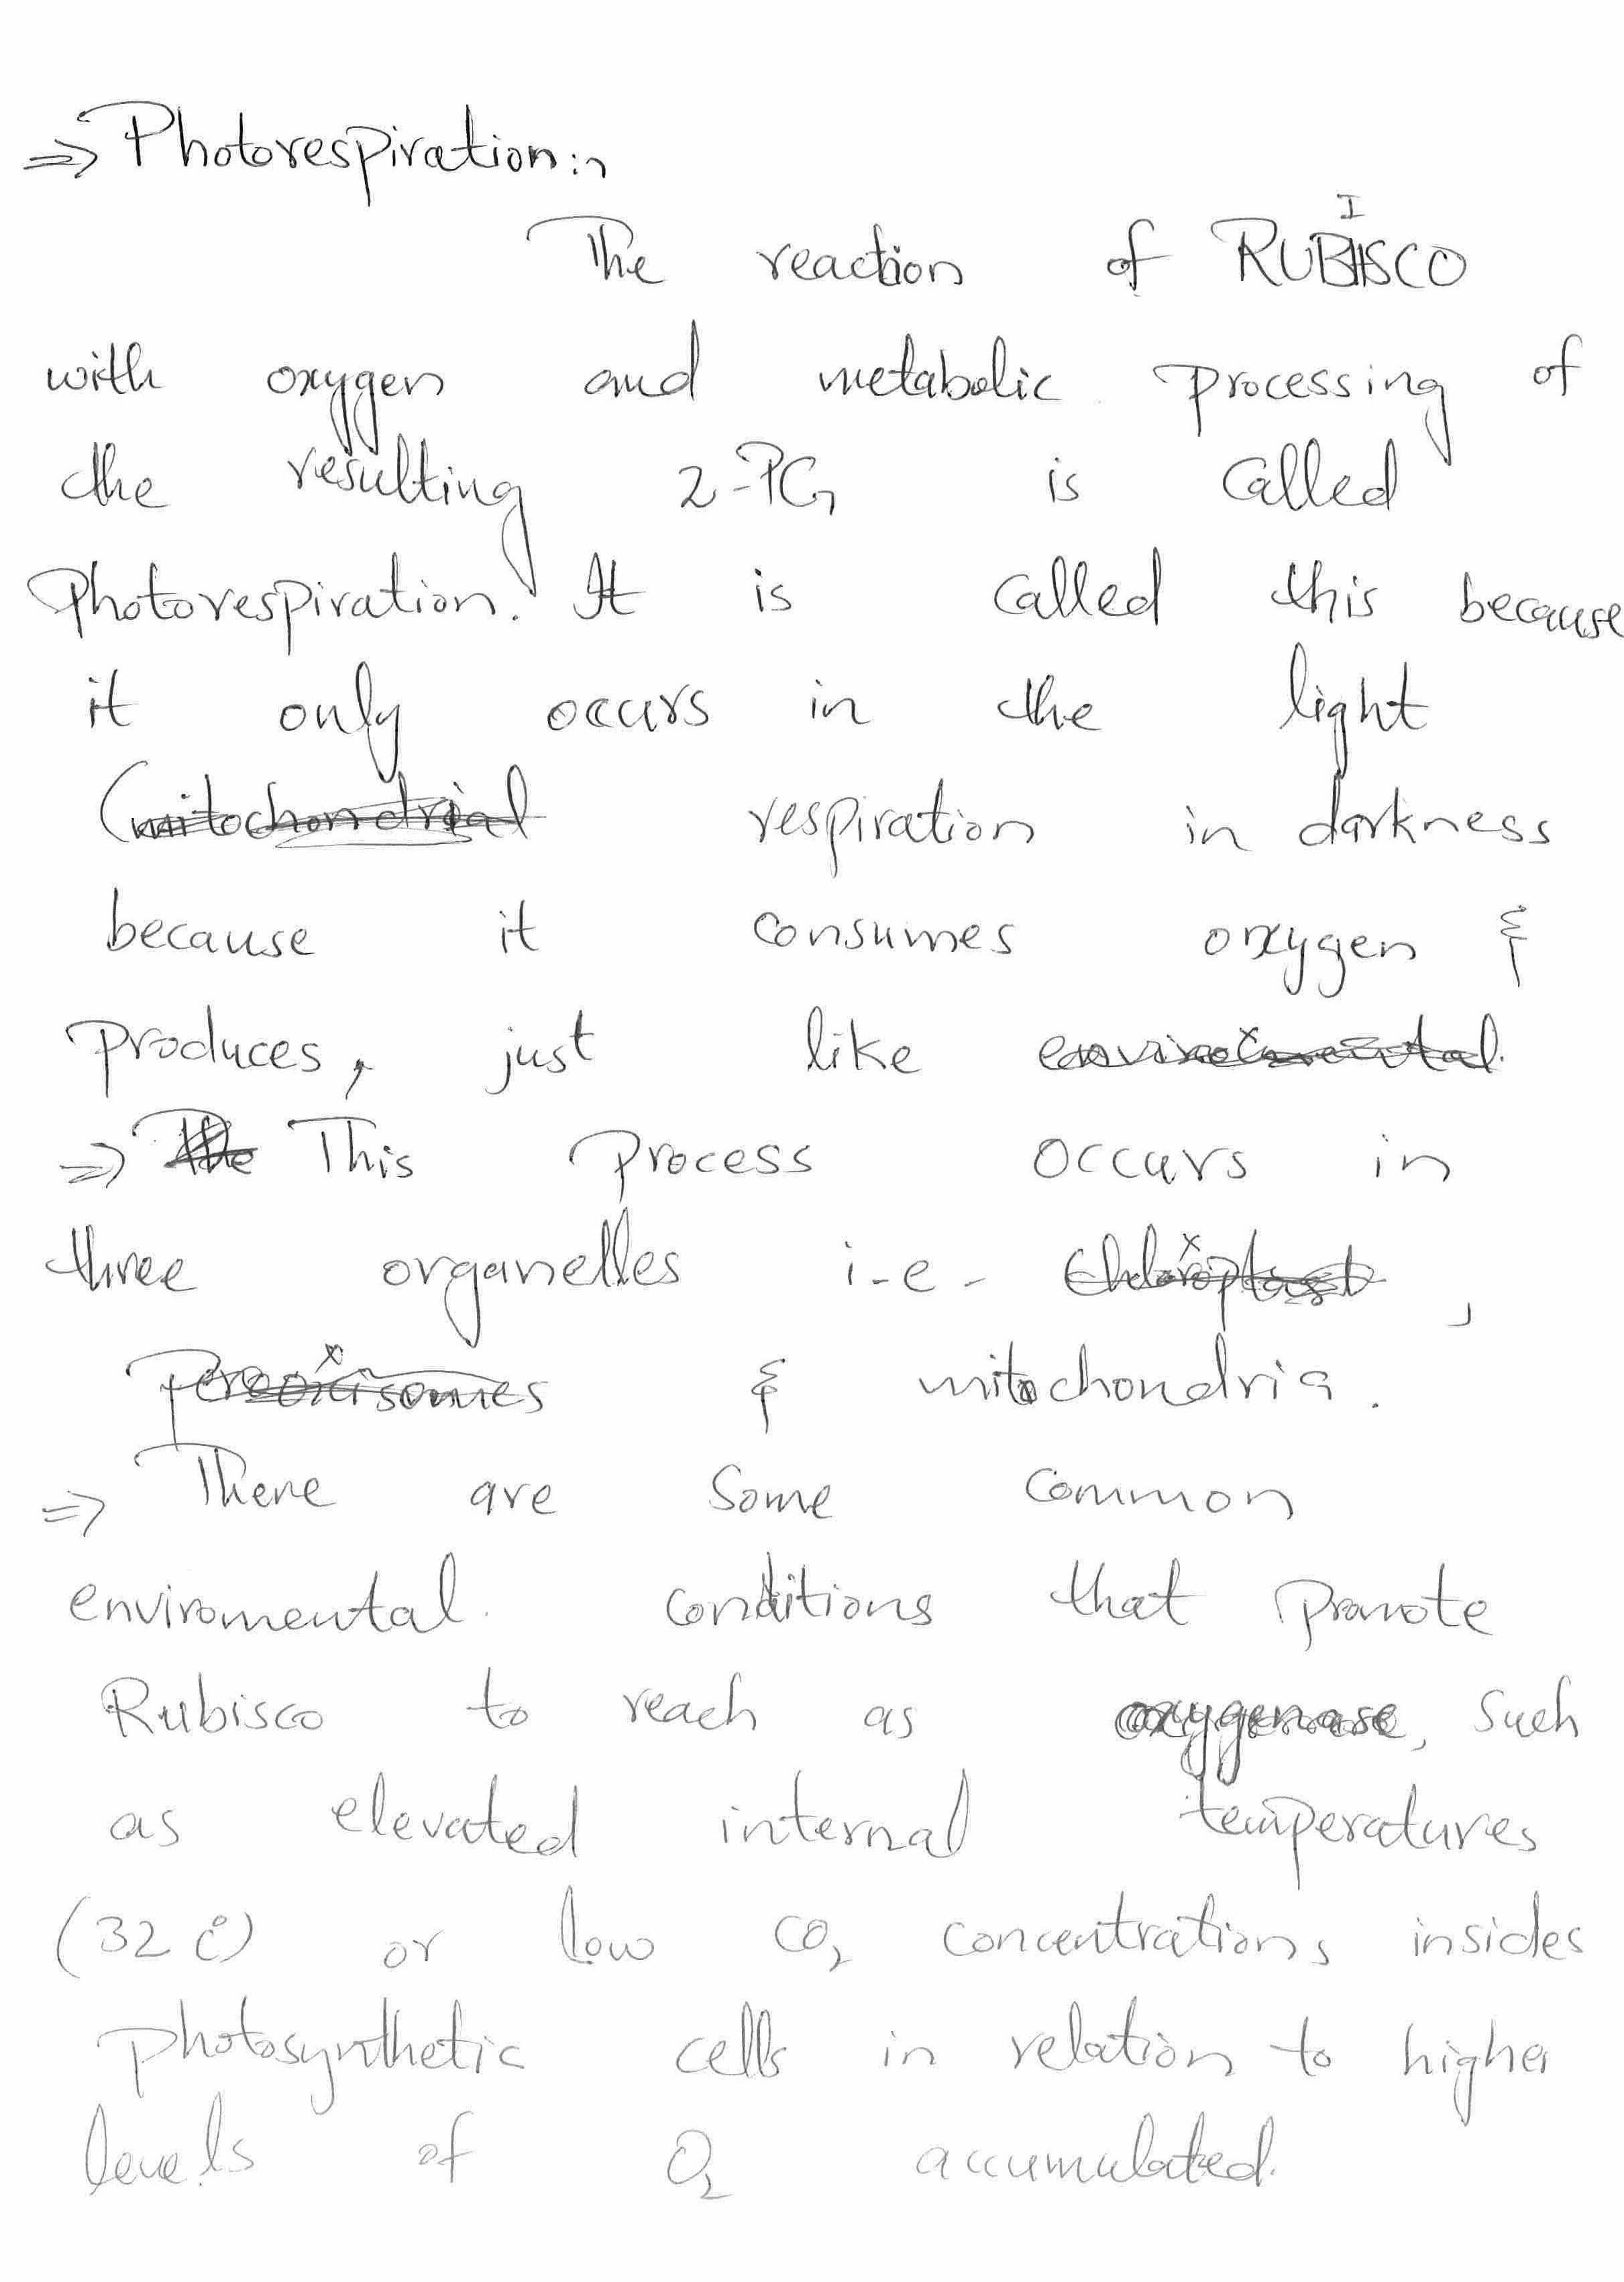 ⇒ Photorespiration:-
The reaction of RUBISCO
with oxygen and metabolic processing of
the resulting 2-PG is called
Photorespiration. It is called this because
it only occurs in the light
(mitochondrial respiration in darkness
because it consumes oxygen &
produces, just like enviromental
⇒ The This process occurs in
three organelles i-e- Chloroplast,
peroxisomes & mitochondria.
⇒ There are some common
enviromental conditions that promote
Rubisco to reach as oxygenase, such
as elevated internal temperatures
(32 c°) or low CO₂ concentrations insides
photosynthetic cells in relation to higher
levels of O₂ accumulated.